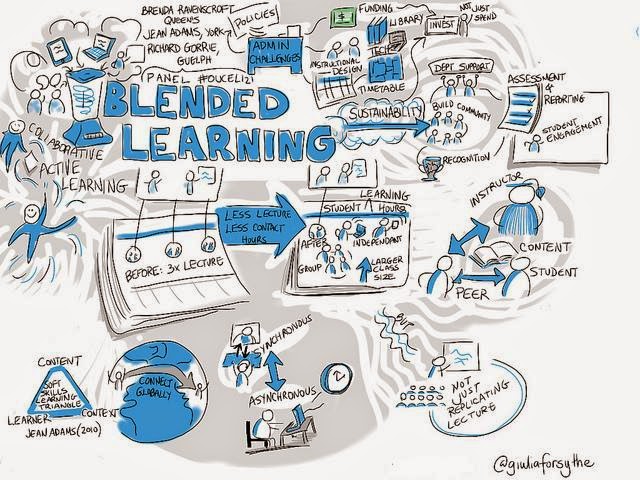 BRENDA RAVENSCROFT
QUEENS
JEAN ADAMS, YORK
RICHARD GORRIE,
GUELPH
PANEL #OUCEL121
POLICIES
ADMIN
CHALLENGES
FUNDING
LIBRARY
TECH
INSTRUCTIONAL
DESIGN
TIMETABLE
INVEST
NOT JUST
SPEND
BLENDED
LEARNING
SUSTAINABILITY
DEPT SUPPORT
BUILD COMMUNITY
RECOGNITION
ASSESSMENT
&
REPORTING
STUDENT
ENGAGEMENT
COLLABORATIVE
ACTIVE
LEARNING
BEFORE: 3x LECTURE
LESS LECTURE
LESS CONTACT
HOURS
LEARNING
STUDENT HOURS
AFTER
INDEPENDANT
GROUP
LARGER
CLASS
SIZE
INSTRUCTOR
CONTENT
STUDENT
PEER
CONTENT
SOFT
SKILLS
LEARNING
TRIANGLE
LEARNER
CONTEXT
JEAN ADAMS (2010)
CONNECT
GLOBALLY
SYNCHRONOUS
ASYNCHRONOUS
BUT
NOT
JUST
REPLICATING
LECTURE
@giuliaforsythe